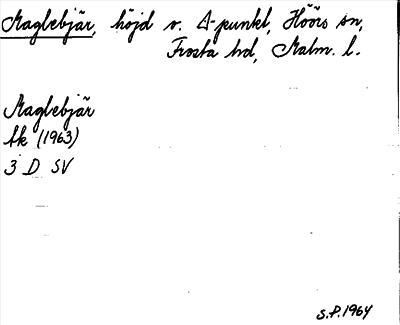 Maglebjär, höjd v. Δ-punkt, Höörs sn,
Frosta hd, Malm. l.
Maglebjär
Ek (1963)
3 D SV
S.P. 1964